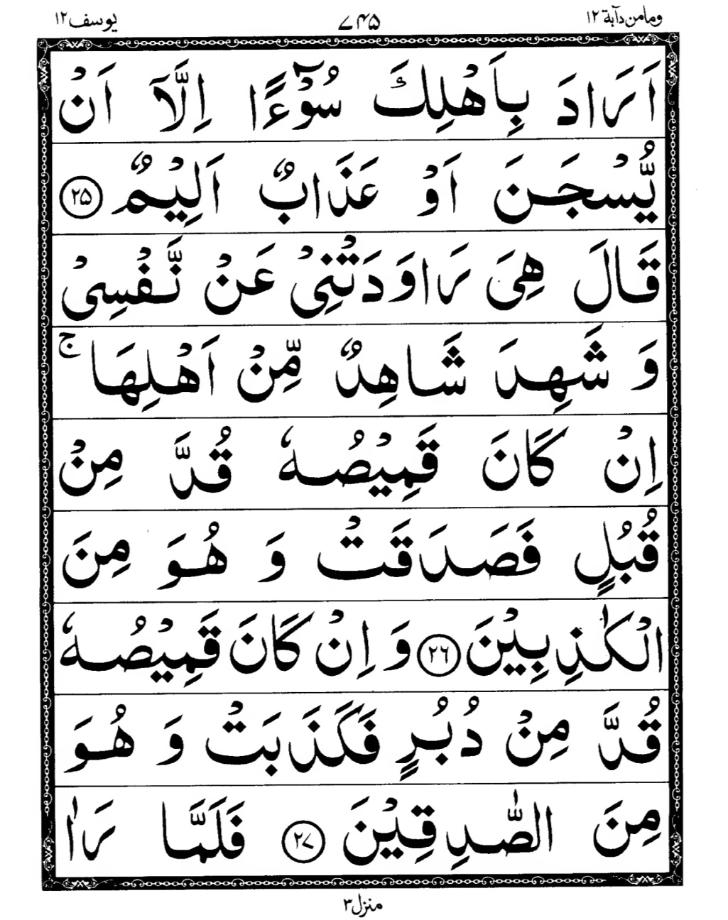 ومامن دآبة ١٢ ٧٤٥ يوسف ١٢
اَرَادَ بِاَهْلِكَ سُوْٓءًا اِلَّاۤ اَنْ
يُّسْجَنَ اَوْ عَذَابٌ اَلِيْمٌ ۝٢٥
قَالَ هِيَ رَاوَدَتْنِيْ عَنْ نَّفْسِيْ
وَ شَهِدَ شَاهِدٌ مِّنْ اَهْلِهَا ۚ
اِنْ كَانَ قَمِيْصُهٗ قُدَّ مِنْ
قُبُلٍ فَصَدَقَتْ وَ هُوَ مِنَ
الْكٰذِبِيْنَ ۝٢٦ وَ اِنْ كَانَ قَمِيْصُهٗ
قُدَّ مِنْ دُبُرٍ فَكَذَبَتْ وَ هُوَ
مِنَ الصّٰدِقِيْنَ ۝٢٧ فَلَمَّا رَاٰ
منزل ٣